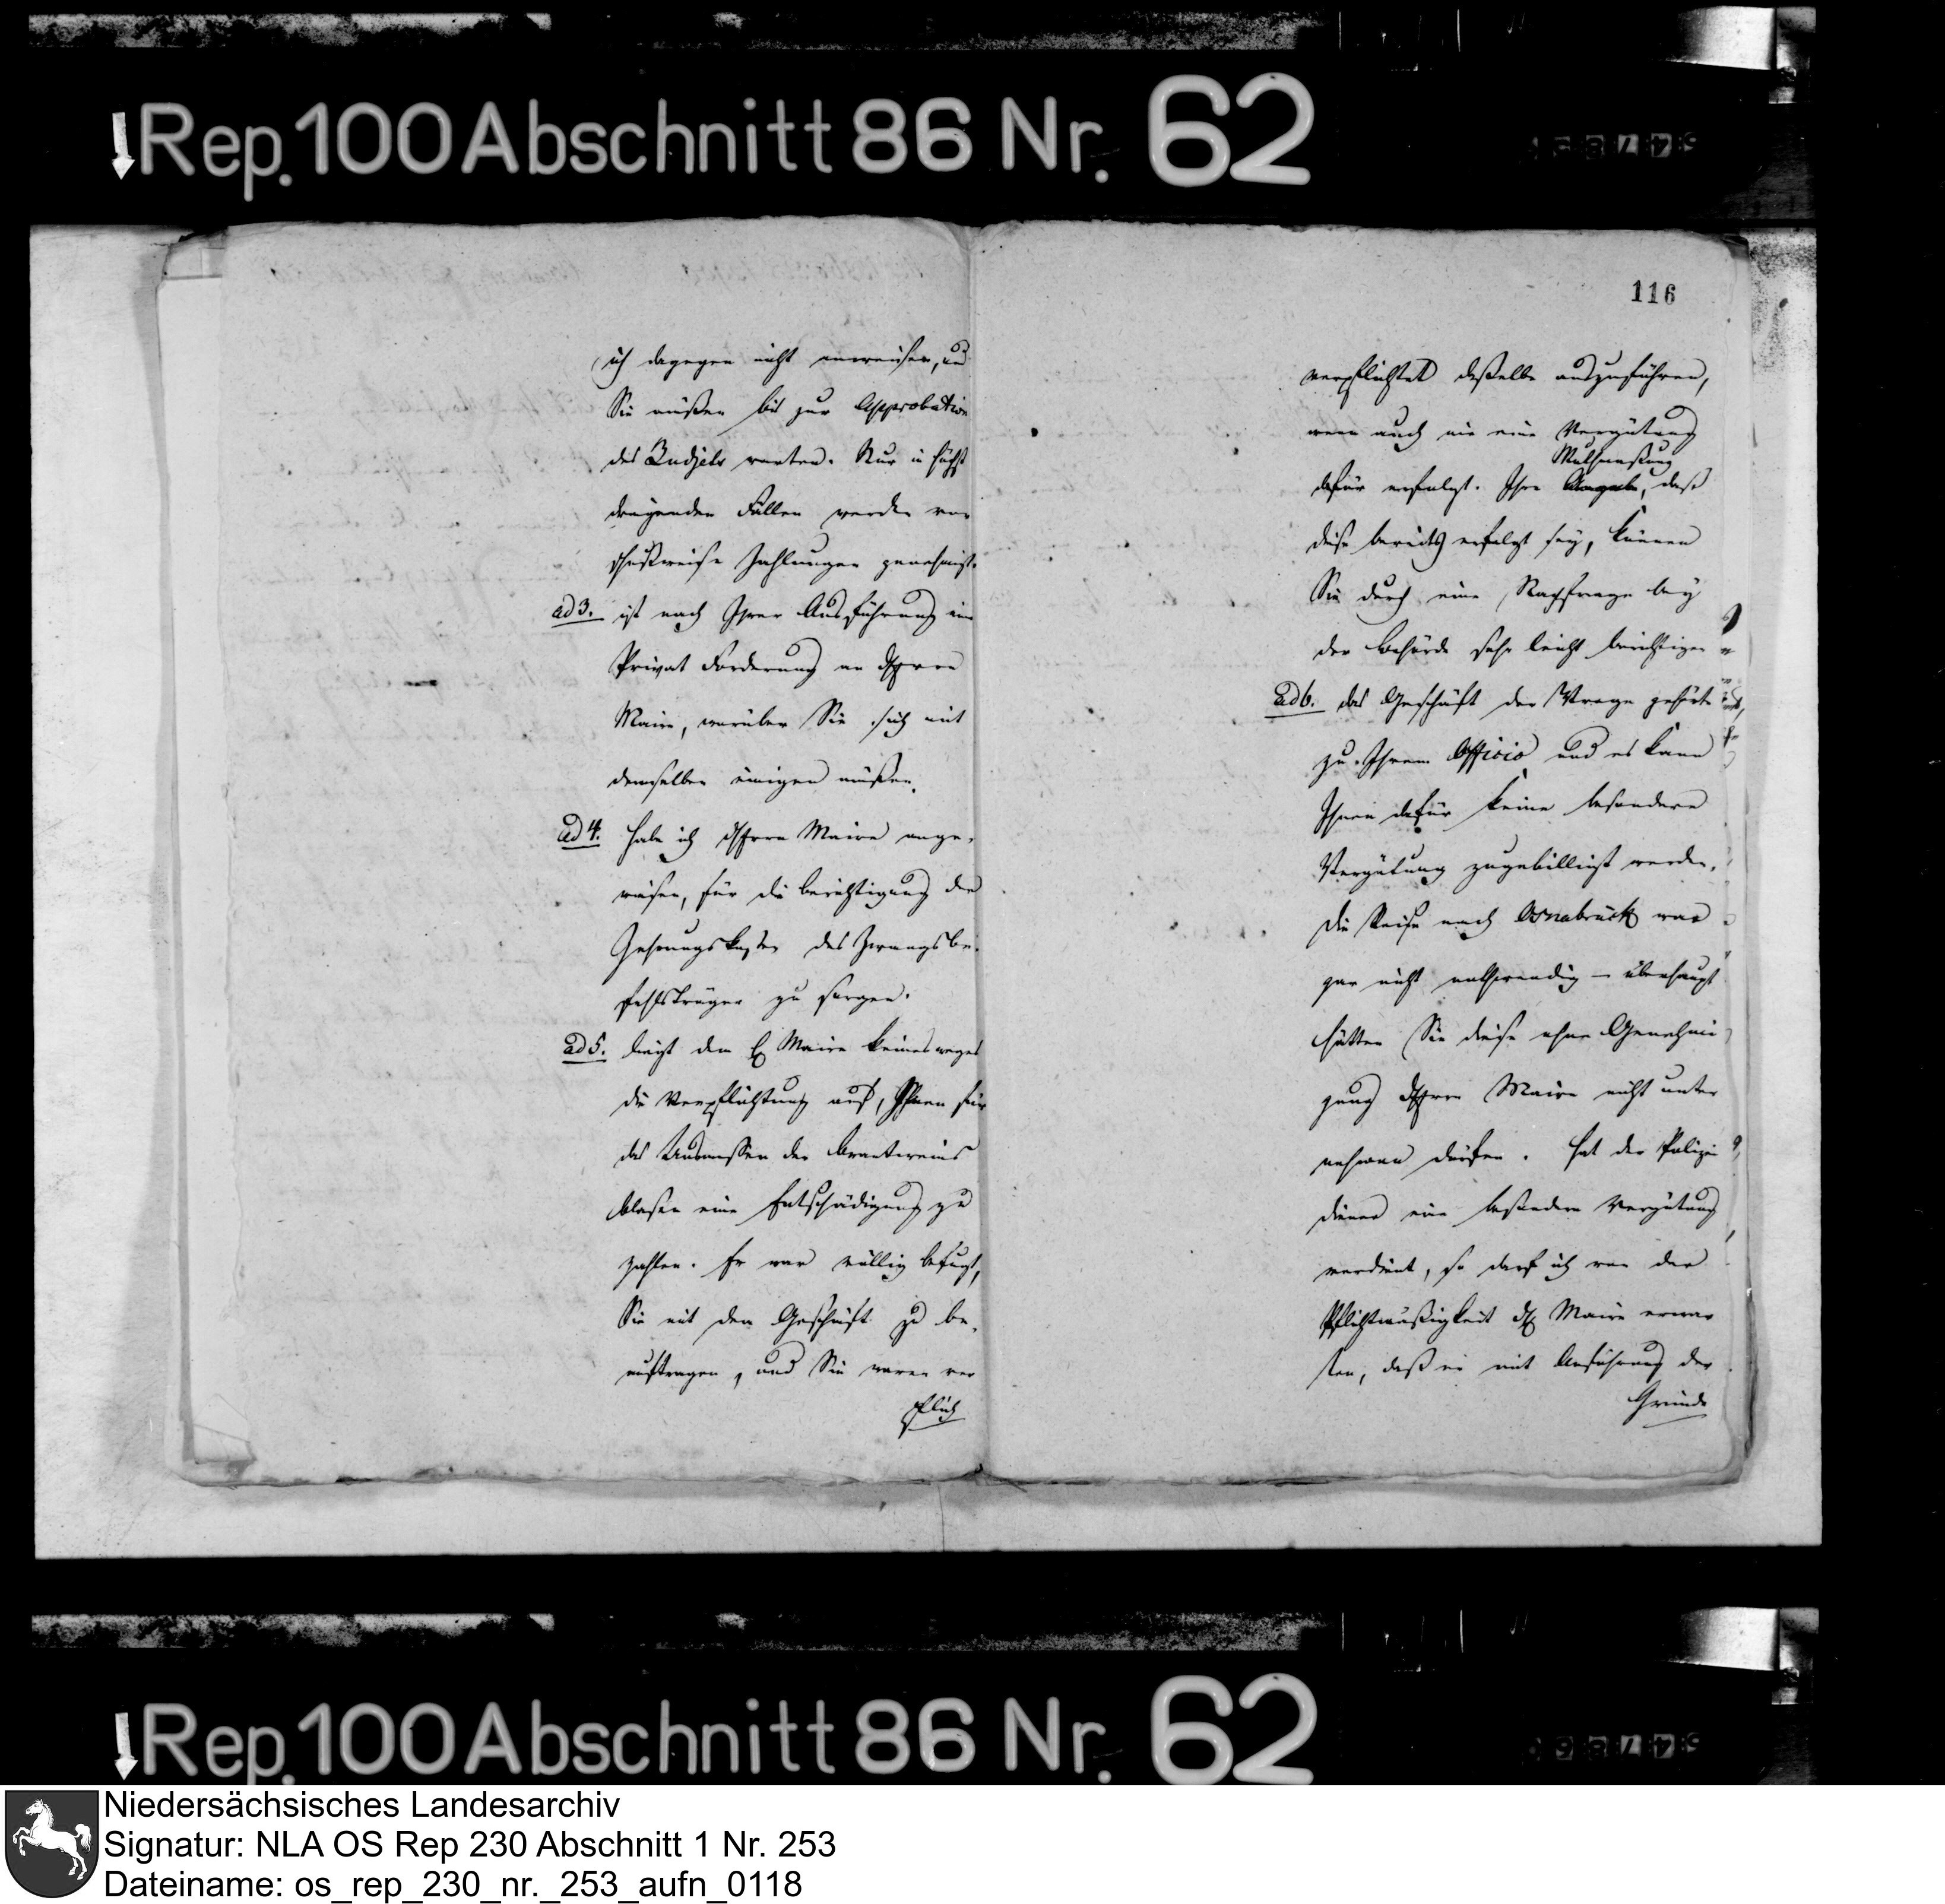 Rep. 100 Abschnitt 86 Nr. 62
116
ich dagegen nicht anweisen, und
Sie müßen bis zur Approbation
des Budjets warten. Nur in höchst
dringenden Fällen werden vor
schußweise Zahlungen genehmigt.
ad 3. ist nach Ihrer Ausführung eine
Privat Forderung an Herrn
Maire, worüber Sie sich mit
demselben einigen müßen.
ad 4. habe ich Herrn Maire ange-
wiesen, für die berichtigung der
Zehrungskosten des Zwangsbe-
fehlsträger zu sorgen.
ad 5. liegt dem H Maire keinesweges
die Verpflichtung auf, Ihnen für
das Ausmessen der Brantweins
blasen eine Entschädigung zu
zahlen. Er war völlig befugt,
Sie mit dem Geschäft zu be-
auftragen, und Sie waren ver
pflich
verpflichtet daßelbe auszuführen,
wenn auch nie eine Vergütung
Muthmaßung
dafür erfolgt. Ihre Angabe, daß
diese bereits erfolgt sey, können
Sie durch eine Nachfrage bey
der Behörde sehr leicht berichtigen
ad 6. das Geschäft der Frage gehörte
zu Ihrem Officio und es kann
Ihnen dafür keine besondere
Vergütung zugebilligt werden.
Die Reise nach Osnabrück war
gar nicht nothwendig – überhaupt
hätten Sie diese ohne Genehmi
gung Herrn Maire nicht unter
nehmen dürfen. Hat der Polizei
diener eine besondere Vergütung
verdient, so darf ich von der
Pflichtmäßigkeit des Maire erwar
ten, daß er mit Anführung der
Gründe
Rep. 100 Abschnitt 86 Nr. 62
Niedersächsisches Landesarchiv
Signatur: NLA OS Rep 230 Abschnitt 1 Nr. 253
Dateiname: os_rep_230_nr._253_aufn_0118